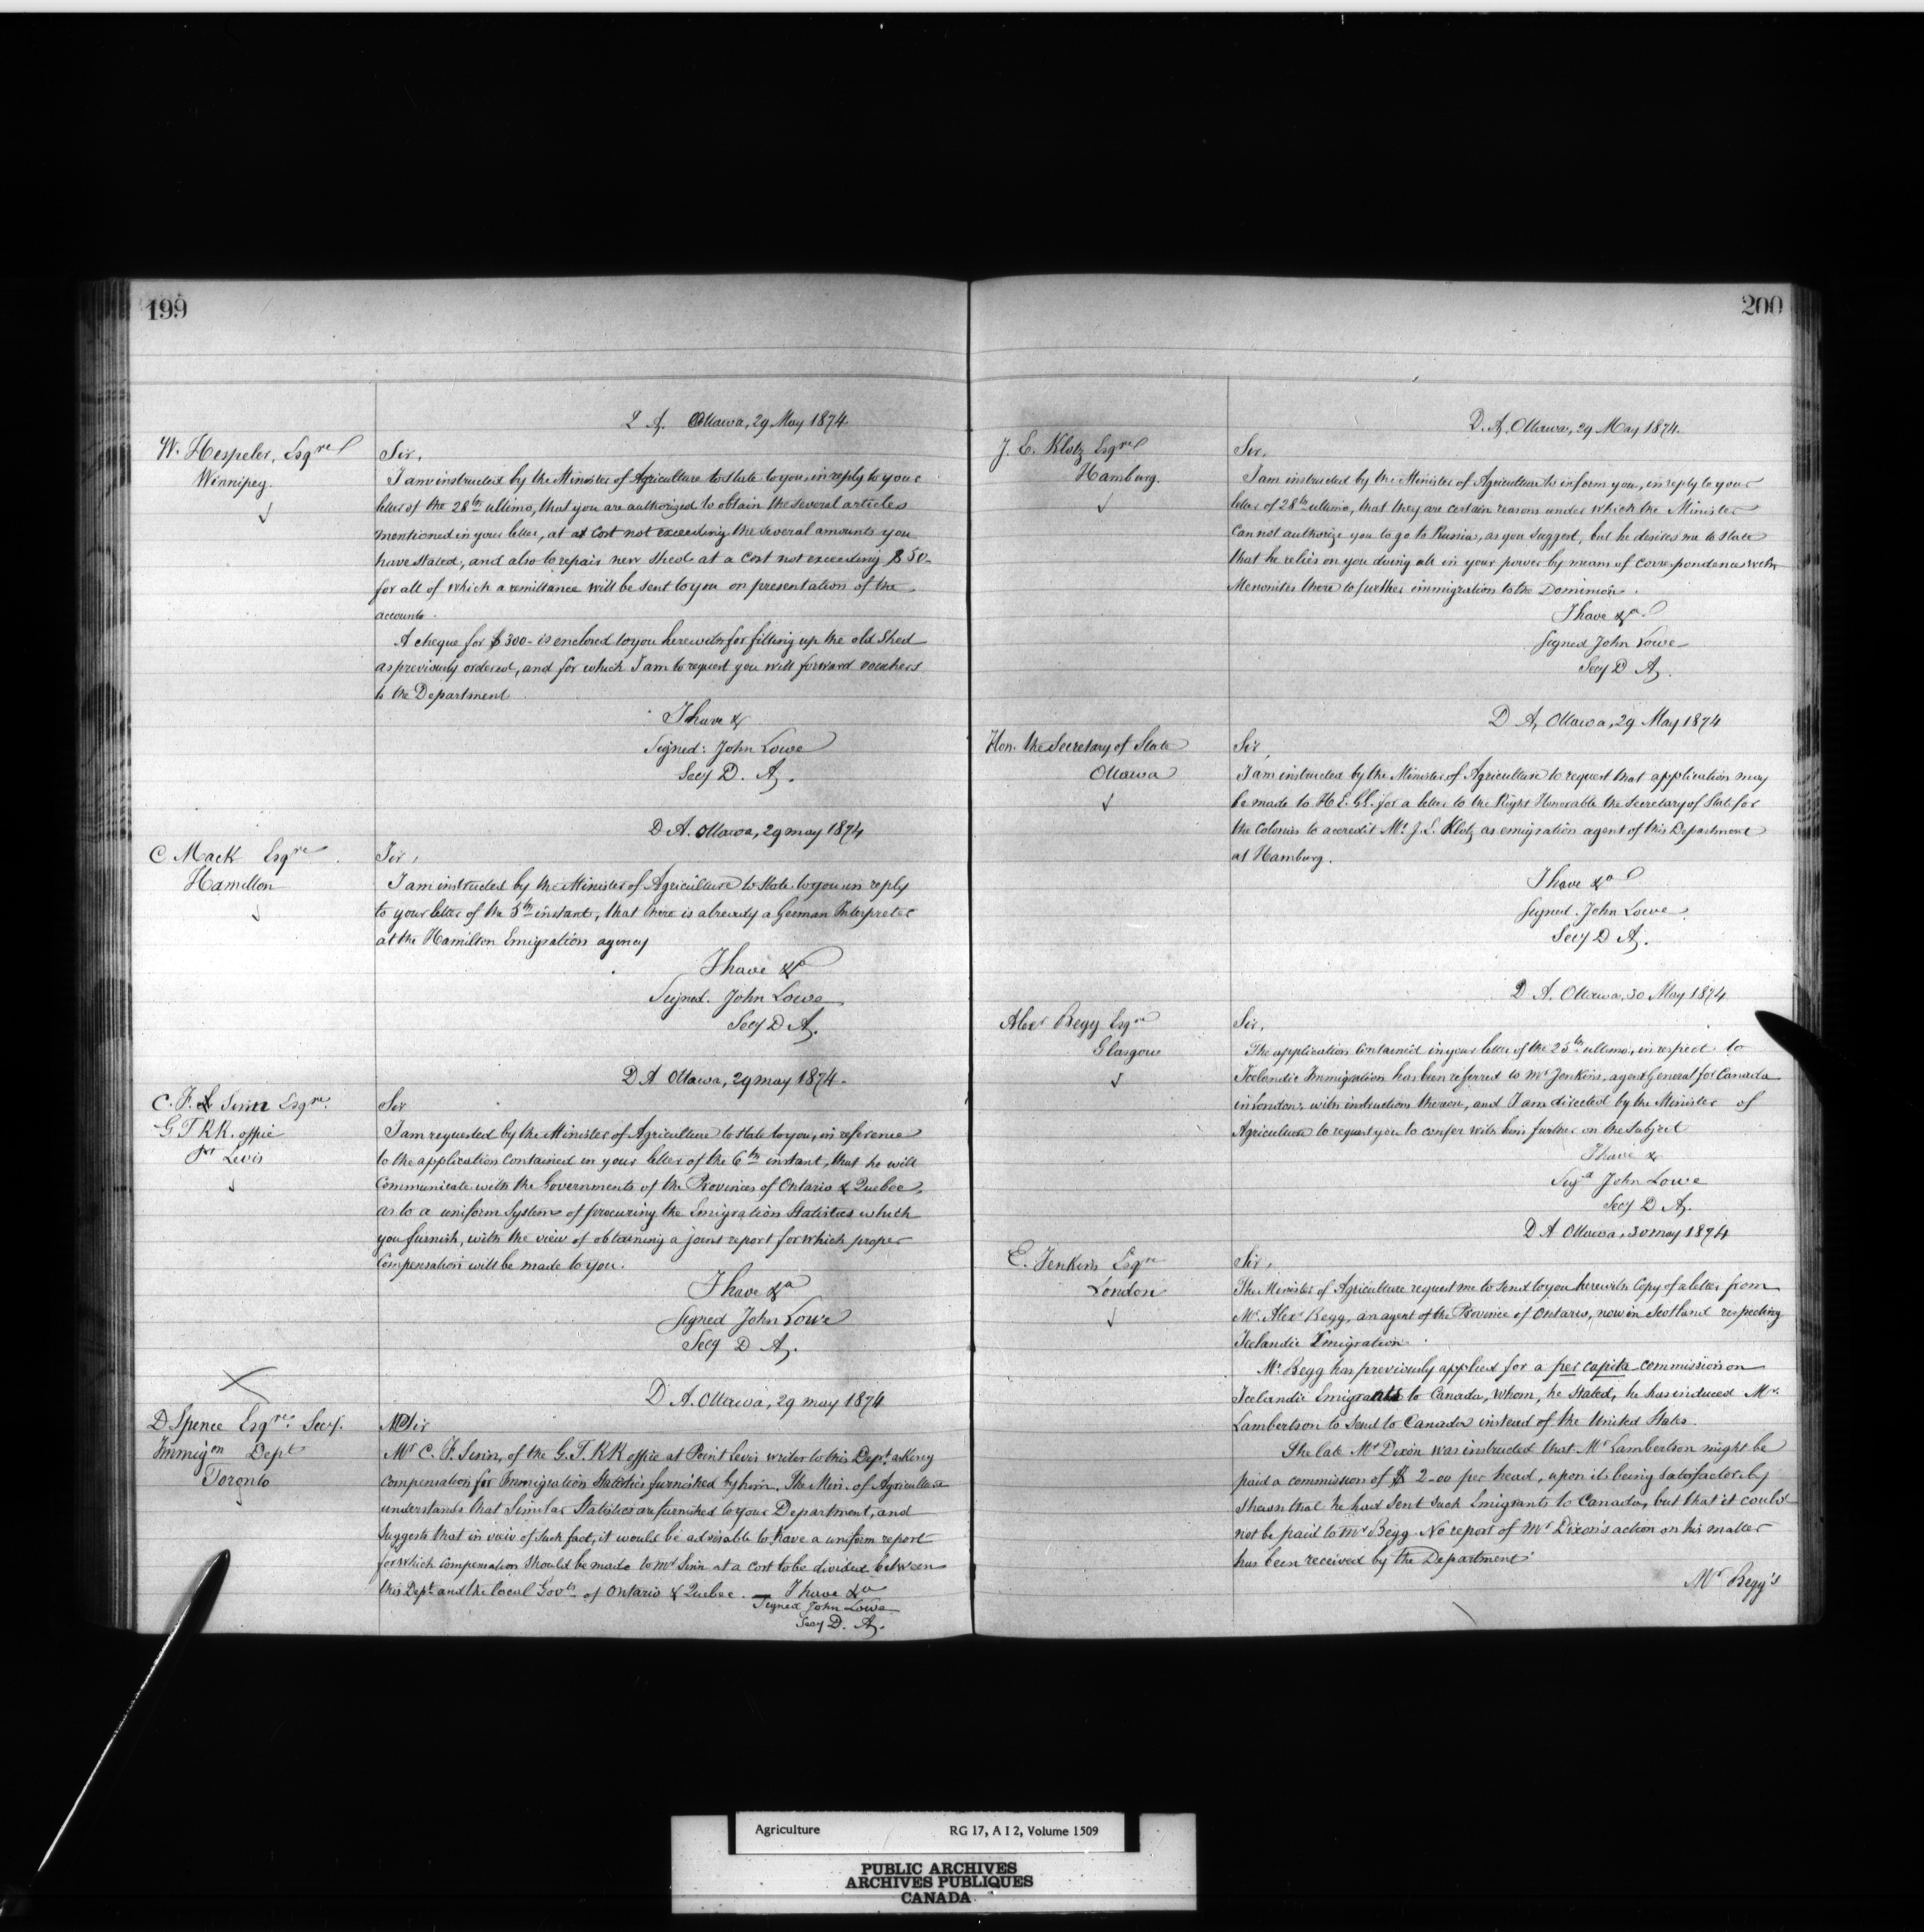 199
D A. Ottawa, 29 May 1874
W. Hespeler, Esqre
Winnipeg.
Sir,
I am instructed by the Minister of Agriculture to state to you, in reply to your
letter of the 28th ultimo, that you are authorized to obtain the several articles
mentioned in your letter, at a cost not exceeding the several amounts you
have stated, and also to repair new shed at a cost not exceeding $50-
for all of which a remittance will be sent to you on presentation of the
accounts.
A cheque for $300- is enclosed to you herewith for fitting up the old shed
as previously ordered, and for which I am to request you will forward vouchers
to the Department
I have &
Signed: John Lowe
Secy D. A.
D A. Ottawa, 29 may 1874
C. Mack Esqre
Hamilton
Sir,
I am instructed by the Minister of Agriculture to state to you in reply
to your letter of the 5th instant, that there is already a German Interpreter
at the Hamilton Emigration agency
I have &
Signed. John Lowe
Secy D A.
D A Ottawa, 29 may 1874.
C. F. Sinn Esqre.
G T RR. office
Pt Levis
Sir
I am requested by the Minister of Agriculture to state to you, in reference
to the application contained in your letter of the 6th instant, that he will
Communicate with the Governments of the Provinces of Ontario & Quebec,
as to a uniform System of procuring the Emigration Statistics which
you furnish, with the view of obtaining a joint report for which proper
compensation will be made to you.
I have &a
Signed John Lowe
Secy D A.
D. A. Ottawa, 29 may 1874
D Spence Esqre. Secy.
Immigon Dept
Toronto
Sir
Mr C. F. Sinn, of the G. T. RR office at Point Levis writes to this Dept. asking
compensation for Immigration Statistics furnished by him. The Min. of Agriculture
understands that Similar Statistics are furnished to your Department, and
Suggests that in view of such fact, it would be advisable to have a uniform report
for which compensation should be made to Mr Sinn at a cost to be divided between
this Dept and the local Govts of Ontario & Quebec. — I have &a
Signed John Lowe
Secy D. A.
200
D. A. Ottawa, 29 May 1874.
J. E. Klotz Esqre
Hamburg.
Sir,
I am instructed by the Minister of Agriculture to inform you, in reply to your
letter of 28th ultimo, that they are certain reasons under which the Minister
Can not authorize you to go to Russia, as you suggest, but he desires me to state
that he relies on you doing all in your power by means of correspondence with
Menonites there to further immigration to the Dominion.
I have &a
Signed John Lowe
Secy D A.
D A, Ottawa, 29 May 1874
Hon. the Secretary of State
Ottawa
Sir,
I am instructed by the Minister of Agriculture to request that application may
be made to H E. GG. for a letter to the Right Honorable the Secretary of State for
the Colonies to accredit Mr. J. E. Klotz as emigration agent of this Department
at Hamburg.
I have &a
Signed. John Lowe.
Secy D A.
D A. Ottawa, 30 May 1874
Alexr Begg Esqre
Glasgow
Sir,
The application contained in your letter of the 25th ultimo, in respect to
Icelandic Immigration has been referred to Mr Jenkins, agent General for Canada
in London, with instructions thereon, and I am directed by the Minister of
Agriculture to request you to confer with him further on the Subject
I have &
Sigd John Lowe
Secy D A.
D A Ottawa, 30 may 1874
E. Jenkins Esqre
London
Sir,
The Minister of Agriculture request me to send to you herewith Copy of a letter from
Mr. Alexr Begg, an agent of the Province of Ontario, now in Scotland respecting
Icelandic Emigration.
Mr. Begg has previously applied for a per capita commission on
Icelandic Emigrants to Canada, whom, he stated, he has induced Mr.
Lambertson to send to Canada instead of the United States.
The late Mr Dixon was instructed that Mr Lambertson might be
paid a commission of $ 2-00 per head, upon its being satisfactorily
shewn that he had sent such Emigrants to Canada, but that it could
not be paid to Mr Begg. No report of Mr Dixon's action on his matter
has been received by the Department.
Mr Begg's
Agriculture RG 17, A I 2, Volume 1509
PUBLIC ARCHIVES
ARCHIVES PUBLIQUES
CANADA